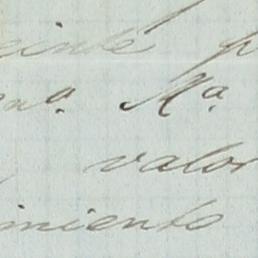 einte p
na. Ma.
valor
imiento